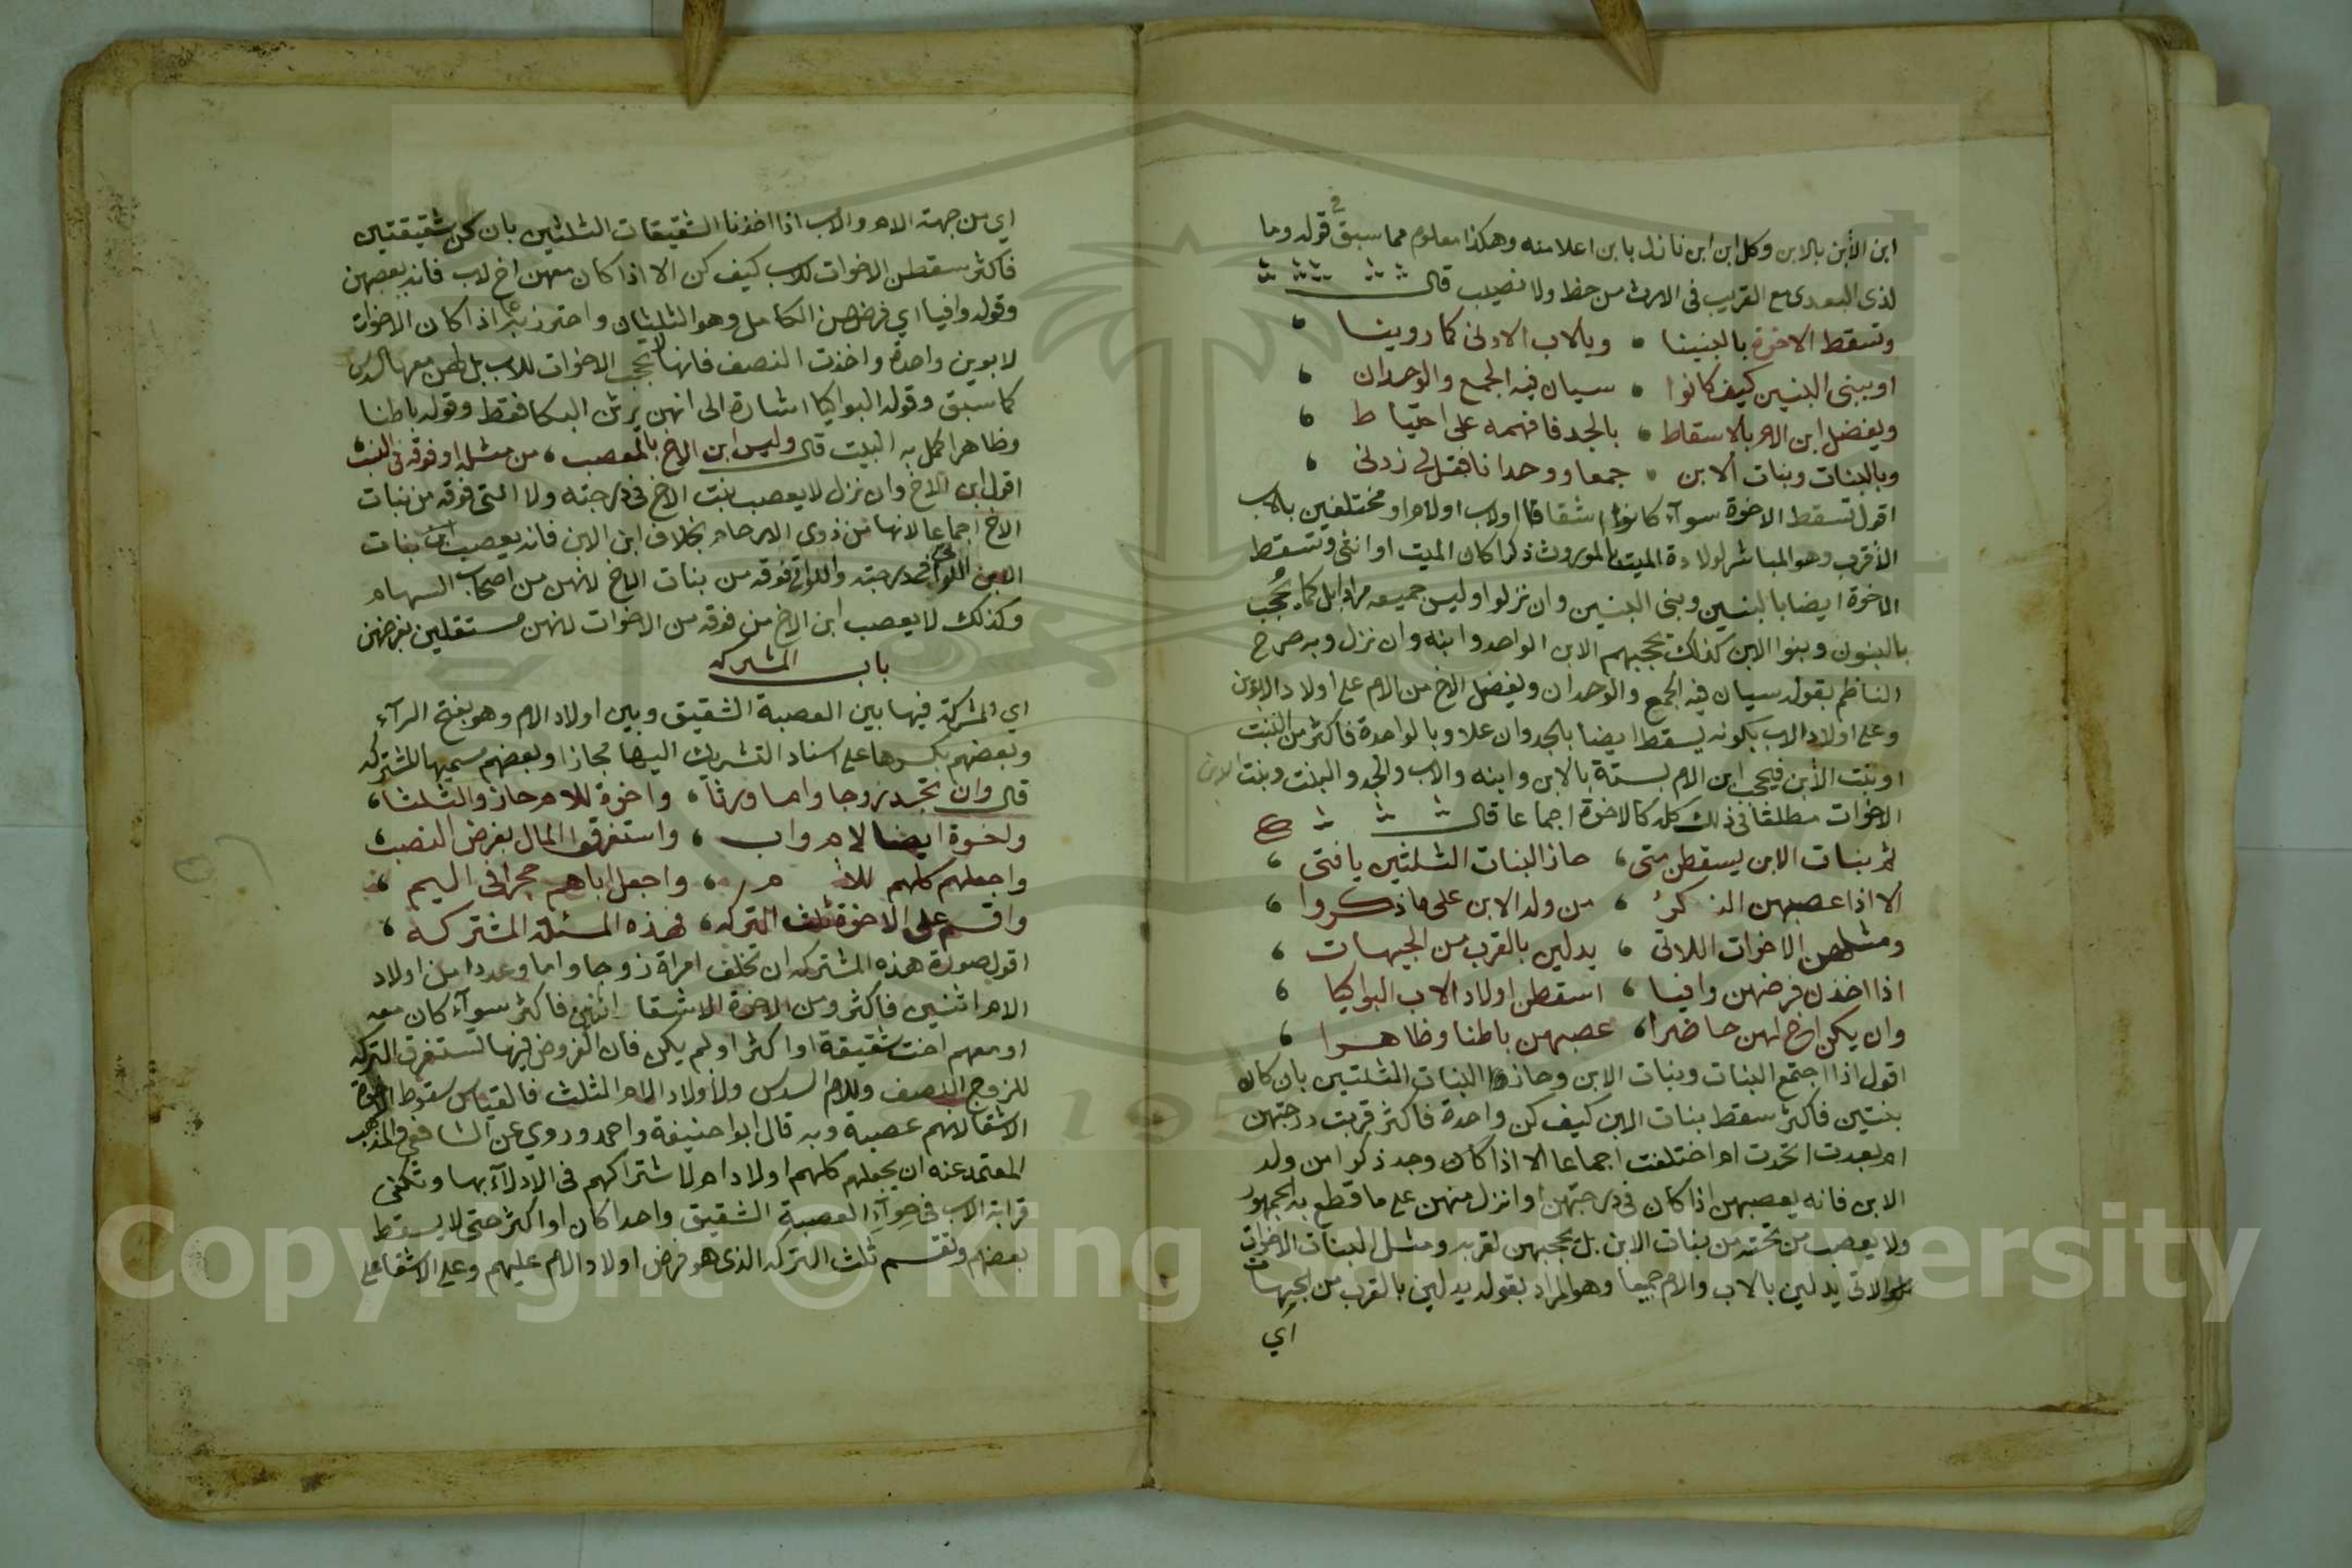 ابن الأبن بالابن وكل ابن ابن نازل بابن اعلا منه وهكذا معلوم مما سبق في قوله وما
لذى البعدى مع القريب فى الارث من حظ ولا نصيب قال
وتسقط الاخوة بالبنينا وبالاب الادنى كما روينا
او ببنى البنين كيف كانوا سيان فيه الجمع والوحدان
ويفضل ابن الام بالاسقاط بالجد فافهمه على احتياط
وبالبنات وبنات الابن جمعا ووحدانا فقل لى زدنى
اقول تسقط الاخوة سوآء كانوا اشقاقا او لاب او لام او مختلفين بالاب
الأقرب وهو المباشر لولادة الميت الموروث ذكرا كان الميت او انثى وتسقط
الاخوة ايضا بالبنين وبنى البنين وان نزلوا وليس جميعه مرادا بل كما يُحجب
بالبنون وبنوا الابن كذلك يحجبهم الابن الواحد وابنه وان نزل وبه صرح
الناظم بقوله سيان فيه الجمع والوحدان ويفضل الاخ من الام على اولاد الابوين
وعلى اولاد الاب بكونه يسقط ايضا بالجد وان علا وبالواحدة فاكثر من البنت
او بنت الأبن فيحجب ابن الام بستة بالابن وابنه والاب والجد والبنت وبنت الابن
الاخوات مطلقا فى ذلك كله كالاخوة اجماعا قال
ثم بنات الابن يسقطن متى حاز البنات الثلثين يا فتى
الا اذا عصبهن الذكر من ولد الابن على ما ذكروا
ومثلهن الاخوات اللاتى يدلين بالقرب من الجهات
اذا اخذن فرضهن وافيا اسقطن اولاد الاب البواكيا
وان يكن اخ لهن حاضرا عصبهن باطنا وظاهرا
اقول اذا اجتمع البنات وبنات الابن وحازوا البنات الثلثين بان كان
بنتين فاكثر سقط بنات الابن كيف كن واحدة فاكثر قربت درجتهن
ام بعدت اتحدت ام اختلفت اجماعا الا اذا كان وجد ذكرا من ولد
الابن فانه يعصبهن اذا كان فى درجتهن او انزل منهن على ما قطع به الجمهور
ولا يعصب من تحته من بنات الابن بل يحجبهن لقربه ومثل البنات الاخوات
الاتى يدلين بالاب والام جميعا وهو المراد بقوله يدلين بالقرب من الجهات
اي
اي من جهة الام والاب اذا اخذنا الشقيقات الثلثين بان كن شقيقتين
فاكثر سقطن الاخوات للاب كيف كن الا اذا كان معهن اخ لاب فانه يعصبهن
وقوله وافيا اي فرضهن الكامل وهو الثلثان واحترز به عما اذا كان الاخوات
لابوين واحدة واخذت النصف فانها لا تحجب الاخوات للاب بل لهن معها السدس
كما سبق وقوله البواكيا اشارة الى انهن يرثن البكا فقط وقوله باطنا
وظاهرا كمل به البيت قال وليس ابن الاخ بالمعصب من مثله او فوقه فى النسب
اقول ابن الاخ وان نزل لا يعصب بنت الاخ فى درجته ولا التى فوقه من بنات
الاخ اجماعا لانها من ذوى الارحام بخلاف ابن الابن فانه يعصب بنات
الابن اللواتى فى درجته واللواتى فوقه من بنات الاخ لانهن من اصحاب السهام
وكذلك لا يعصب ابن الاخ من فوقه من الاخوات لانهن مستقلين بفرضهن
باب المشركه
اي المشركة فيها بين العصبة الشقيق وبين اولاد الام وهو بفتح الرآء
وبعضهم بكسرها على اسناد التشريك اليها مجازا وبعضهم يسميها المشتركه
قال وان تجد زوجا واما ورثا واخوة للام حازوا الثلثا
واخوة ايضا لام واب واستغرقوا المال بفرض النصب
واجعلهم كلهم للام واجعل اباهم حجرا فى اليم
واقسم على الاخوة ثلث التركه فهذه المسئلة المشتركه
اقول صورة هذه المشتركه ان تخلف امراة زوجا واما وعددا من اولاد
الام اثنين فاكثر ومن الاخوة الاشقا اثنين فاكثر سوآء كان معه
او معهم اخت شقيقة او اكثر او لم يكن فان الفروض فيها تستغرق التركه
للزوج النصف وللام السدس ولأولاد الام الثلث فالقياس سقوط الاخوة
الاشقا لانهم عصبة وبه قال ابوا حنيفة واحمد وروي عن الشافعى والمذهب
المعتمد عنه ان يجعلهم كلهم اولاد ام لاشتراكهم فى الادلآء بها وتلغى
قرابة الاب فى حق العصبة الشقيق واحدا كان او اكثر حتى لا يسقط
بعضهم وتقسم ثلث التركه الذى هو فرض اولاد الام عليهم وعلى الاشقا على
Copyright © King Saud University